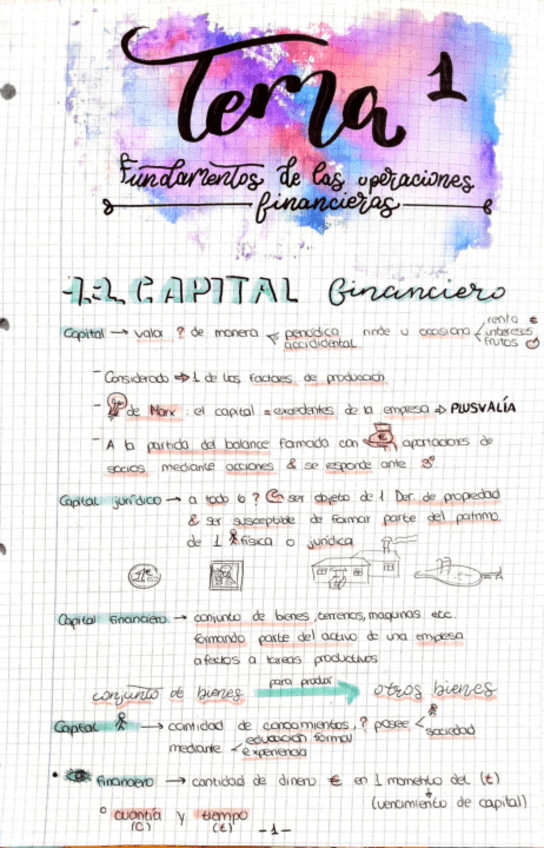 Tema 1
Fundamentos de las operaciones
financieras
1.1. CAPITAL financiero
Capital → valor ? de manera periódica rinde u ocasiona renta €
accididental. intereses
frutos
- Considerado → 1 de los factores de producción
- de Marx : el capital = excedentes de la empresa → PLUSVALÍA
- A la partida del balance formada con aportaciones de
socios mediante acciones & se responde ante 3º.
Capital jurídico → a todo ó ? ser objeto de 1 Der. de propiedad
& ser susceptible de formar parte del patrimo.
de 1 física o jurídica
1€
Capital financiero → conjunto de bienes, terrenos, maquinas etc.
formando parte del activo de una empresa
afectos a tareas productivos
conjunto de bienes para produr → otros bienes
Capital → cantidad de conocimientos, ? posee sociedad
mediante educación formal
experiencia
• financiero → cantidad de dinero € en 1 momento del (t)
(vencimiento de capital)
° cuantía y tiempo
(C) (t)
-1-